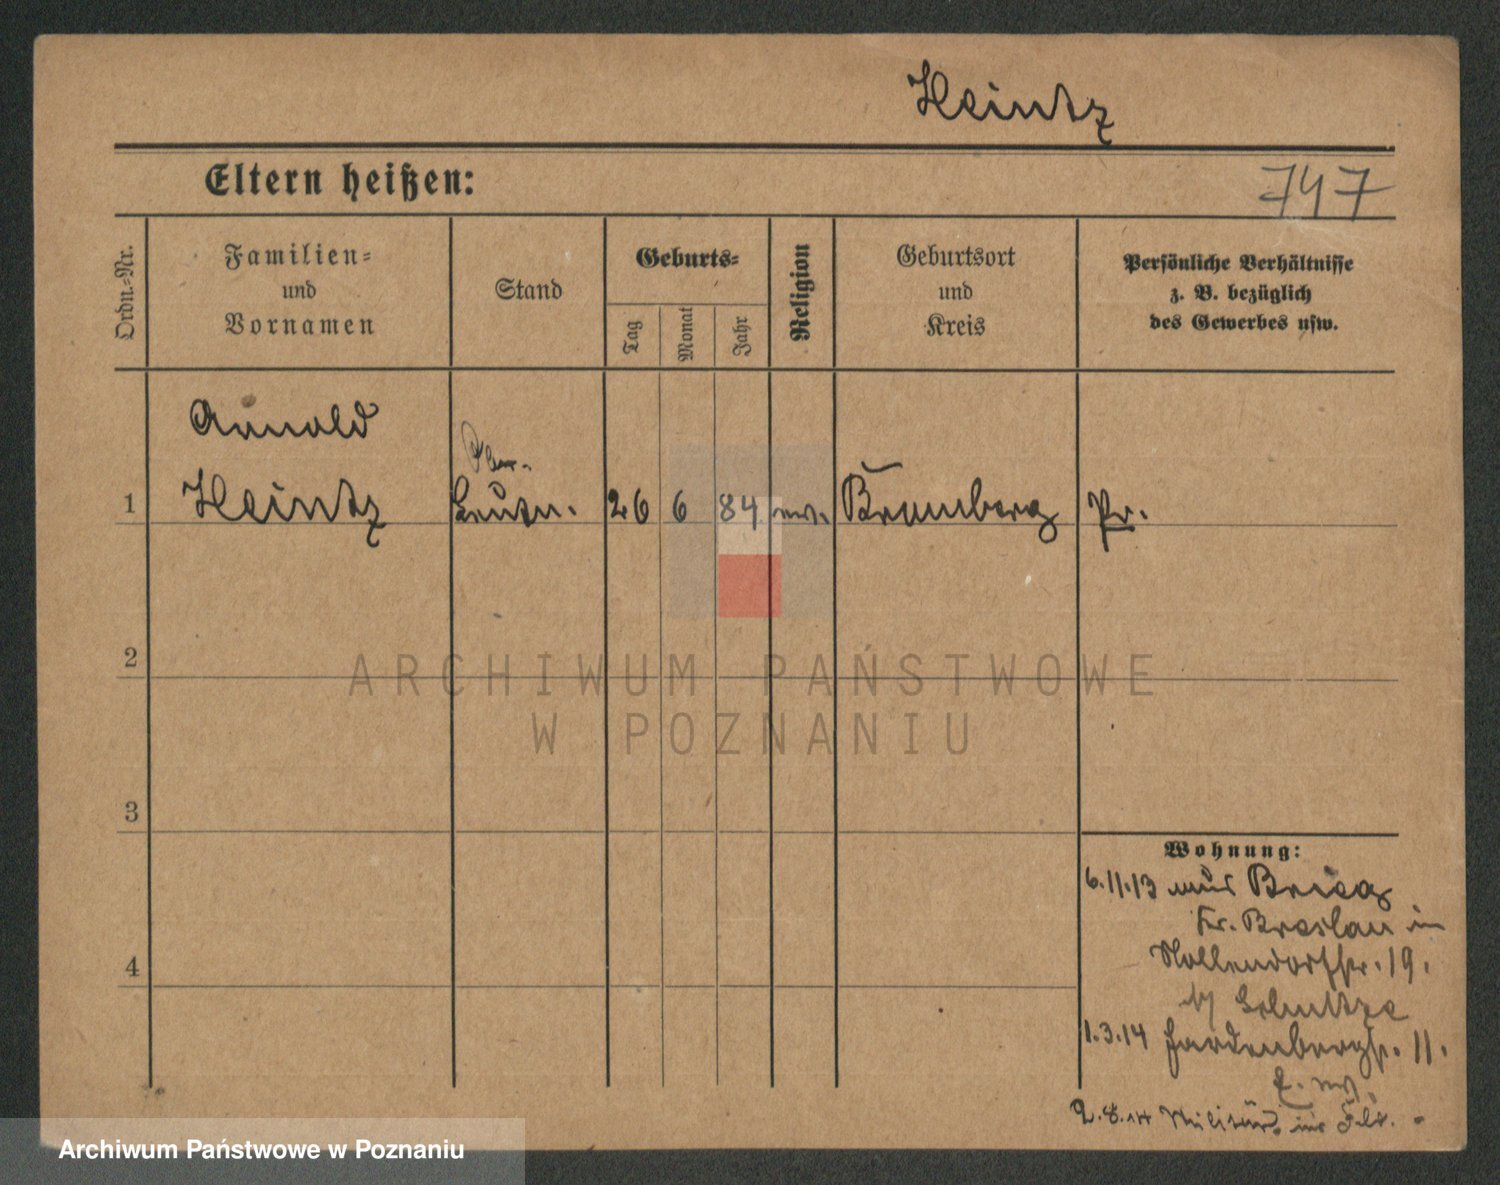 Heintz
Eltern heißen:
747
Ordn.-Nr.
Familien-
und
Vornamen
Stand
Geburts-
Tag
Monat
Jahr
Religion
Geburtsort
und
Kreis
Persönliche Verhältnisse
z. B. bezüglich
des Gewerbes usw.
Arnold
Ober-
1 Heintz Leutn. 26 6 84 ev. Bromberg Pr.
2
ARCHIWUM PAŃSTWOWE
W POZNANIU
3
Wohnung:
6.11.13 aus Brieg
Kr. Breslau in
Nollendorfstr. 19.
b/ Schultze
4
1.3.14 Hardenbergstr. 11.
2.8.14 Militär im Feld.
Archiwum Państwowe w Poznaniu